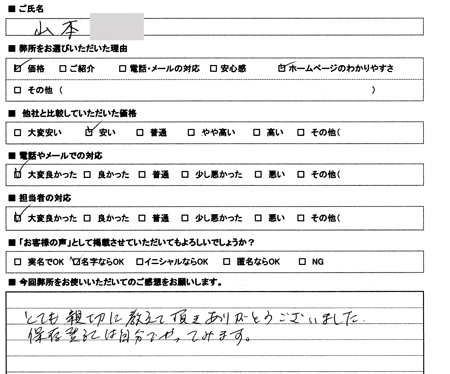 ■ ご氏名
山本
■ 弊所をお選びいただいた理由
☑ 価格 □ ご紹介 □ 電話・メールの対応 □ 安心感 ☑ ホームページのわかりやすさ
□ その他 ( )
■ 他社と比較していただいた価格
□ 大変安い ☑ 安い □ 普通 □ やや高い □ 高い □ その他(
■ 電話やメールでの対応
☑ 大変良かった □ 良かった □ 普通 □ 少し悪かった □ 悪い □ その他(
■ 担当者の対応
☑ 大変良かった □ 良かった □ 普通 □ 少し悪かった □ 悪い □ その他(
■ 「お客様の声」として掲載させていただいてもよろしいでしょうか?
□ 実名でOK ☑ 名字ならOK □ イニシャルならOK □ 匿名ならOK □ NG
■ 今回弊所をお使いいただいてのご感想をお願いします。
とても親切に教えて頂きありがとうございました.
保存登記は自分でやってみます。